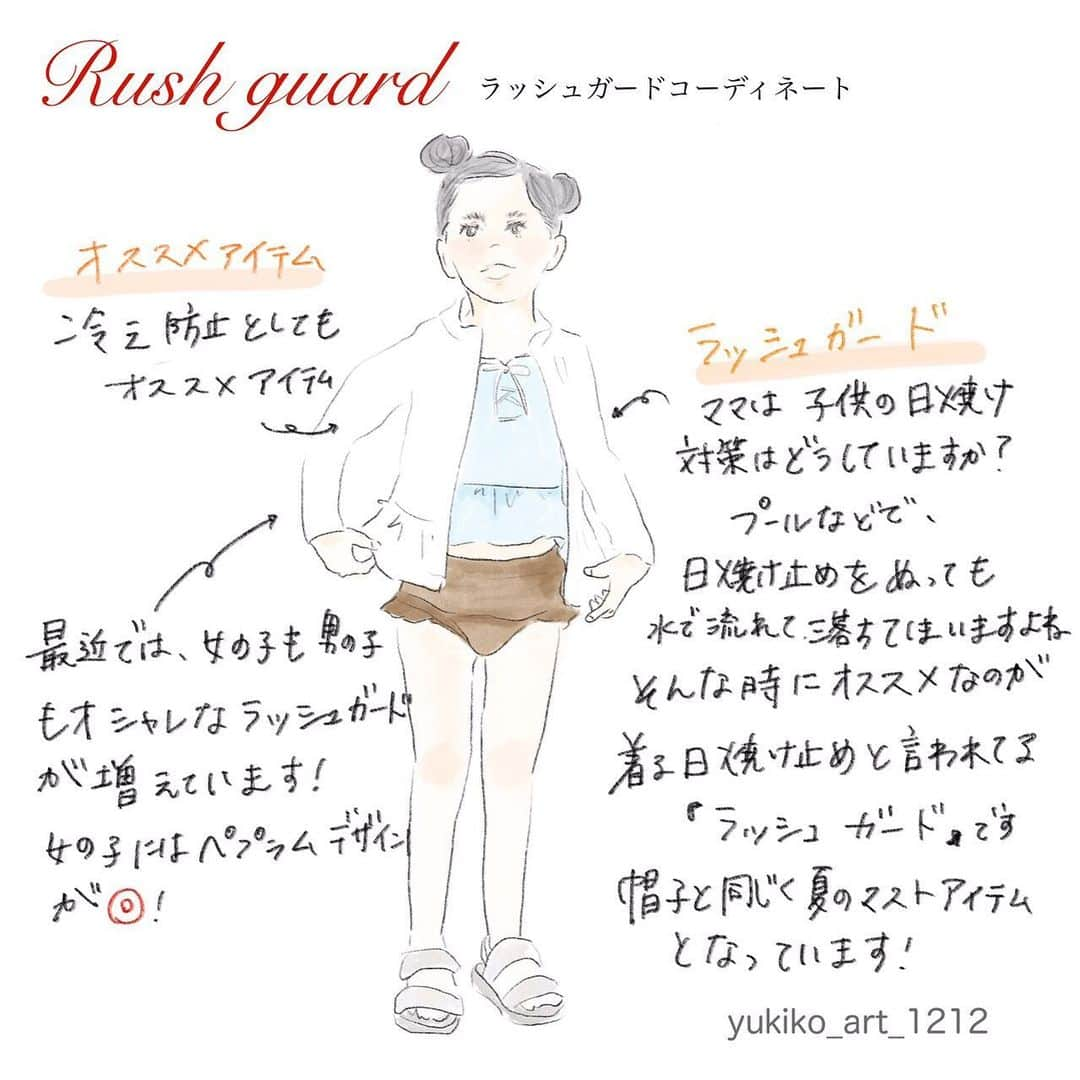 Rush guard ラッシュガードコーディネート
オススメアイテム
冷え防止としても
オススメアイテム
ラッシュガード
ママは子供の日焼け
対策はどうしていますか?
プールなどで、
日焼け止めをぬっても
水で流れて落ちてしまいますよね
そんな時にオススメなのが
着る日焼け止めと言われてる
『ラッシュガード』です
帽子と同じく夏のマストアイテム
となっています!
最近では、女の子も男の子
もオシャレなラッシュガード
が増えています!
女の子にはペプラムデザイン
が◎!
yukiko_art_1212